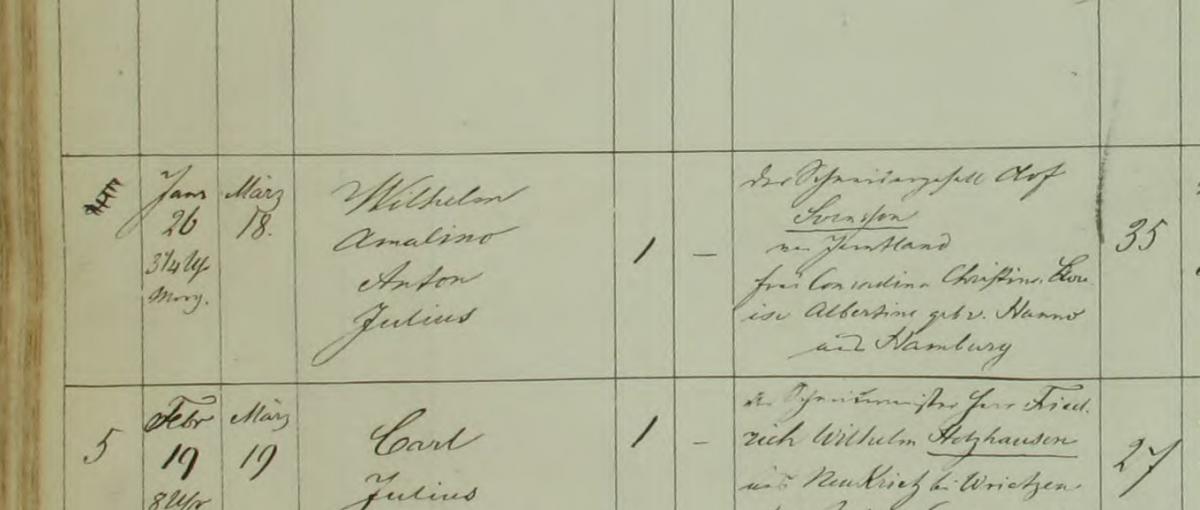 Janr
26
3 1/4 Uhr
Morg.
März
18.
Wilhelm
Amalino
Anton
Julius
1
–
der Schneidergesell Olof
Svensson
Jemtland
frau Concordina Christina Lou
ise Albertine geb. Hanno
aus Hamburg
35
5
Febr
19
8 Uhr
März
19
Carl
Julius
1
–
Schneidermeister Herr Fried.
rich Wilhelm Holzhausen
aus Neu Krietz bei Wrietzen
27